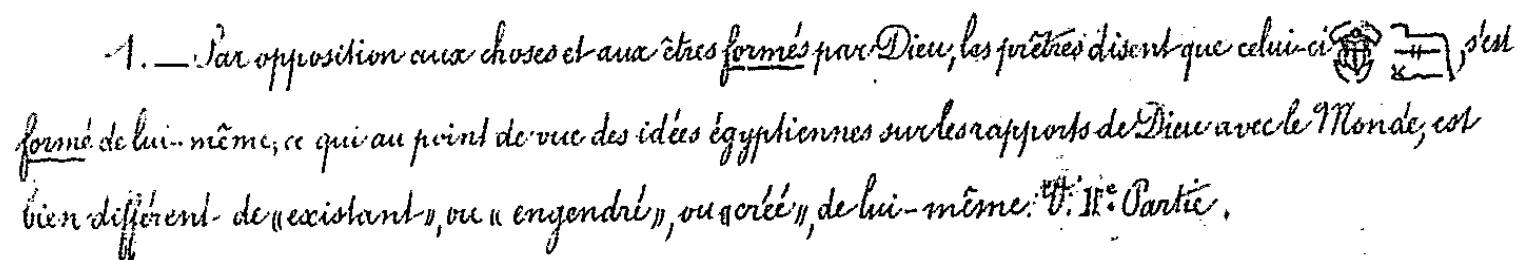 1. — Par opposition aux choses et aux êtres formés par Dieu, les prêtres disent que celui-ci , s'est
formé de lui-même; ce qui au point de vue des idées égyptiennes sur les rapports de Dieu avec le Monde, est
bien différent de «existant», ou «engendré», ou «créé», de lui-même. V. IIe Partie.